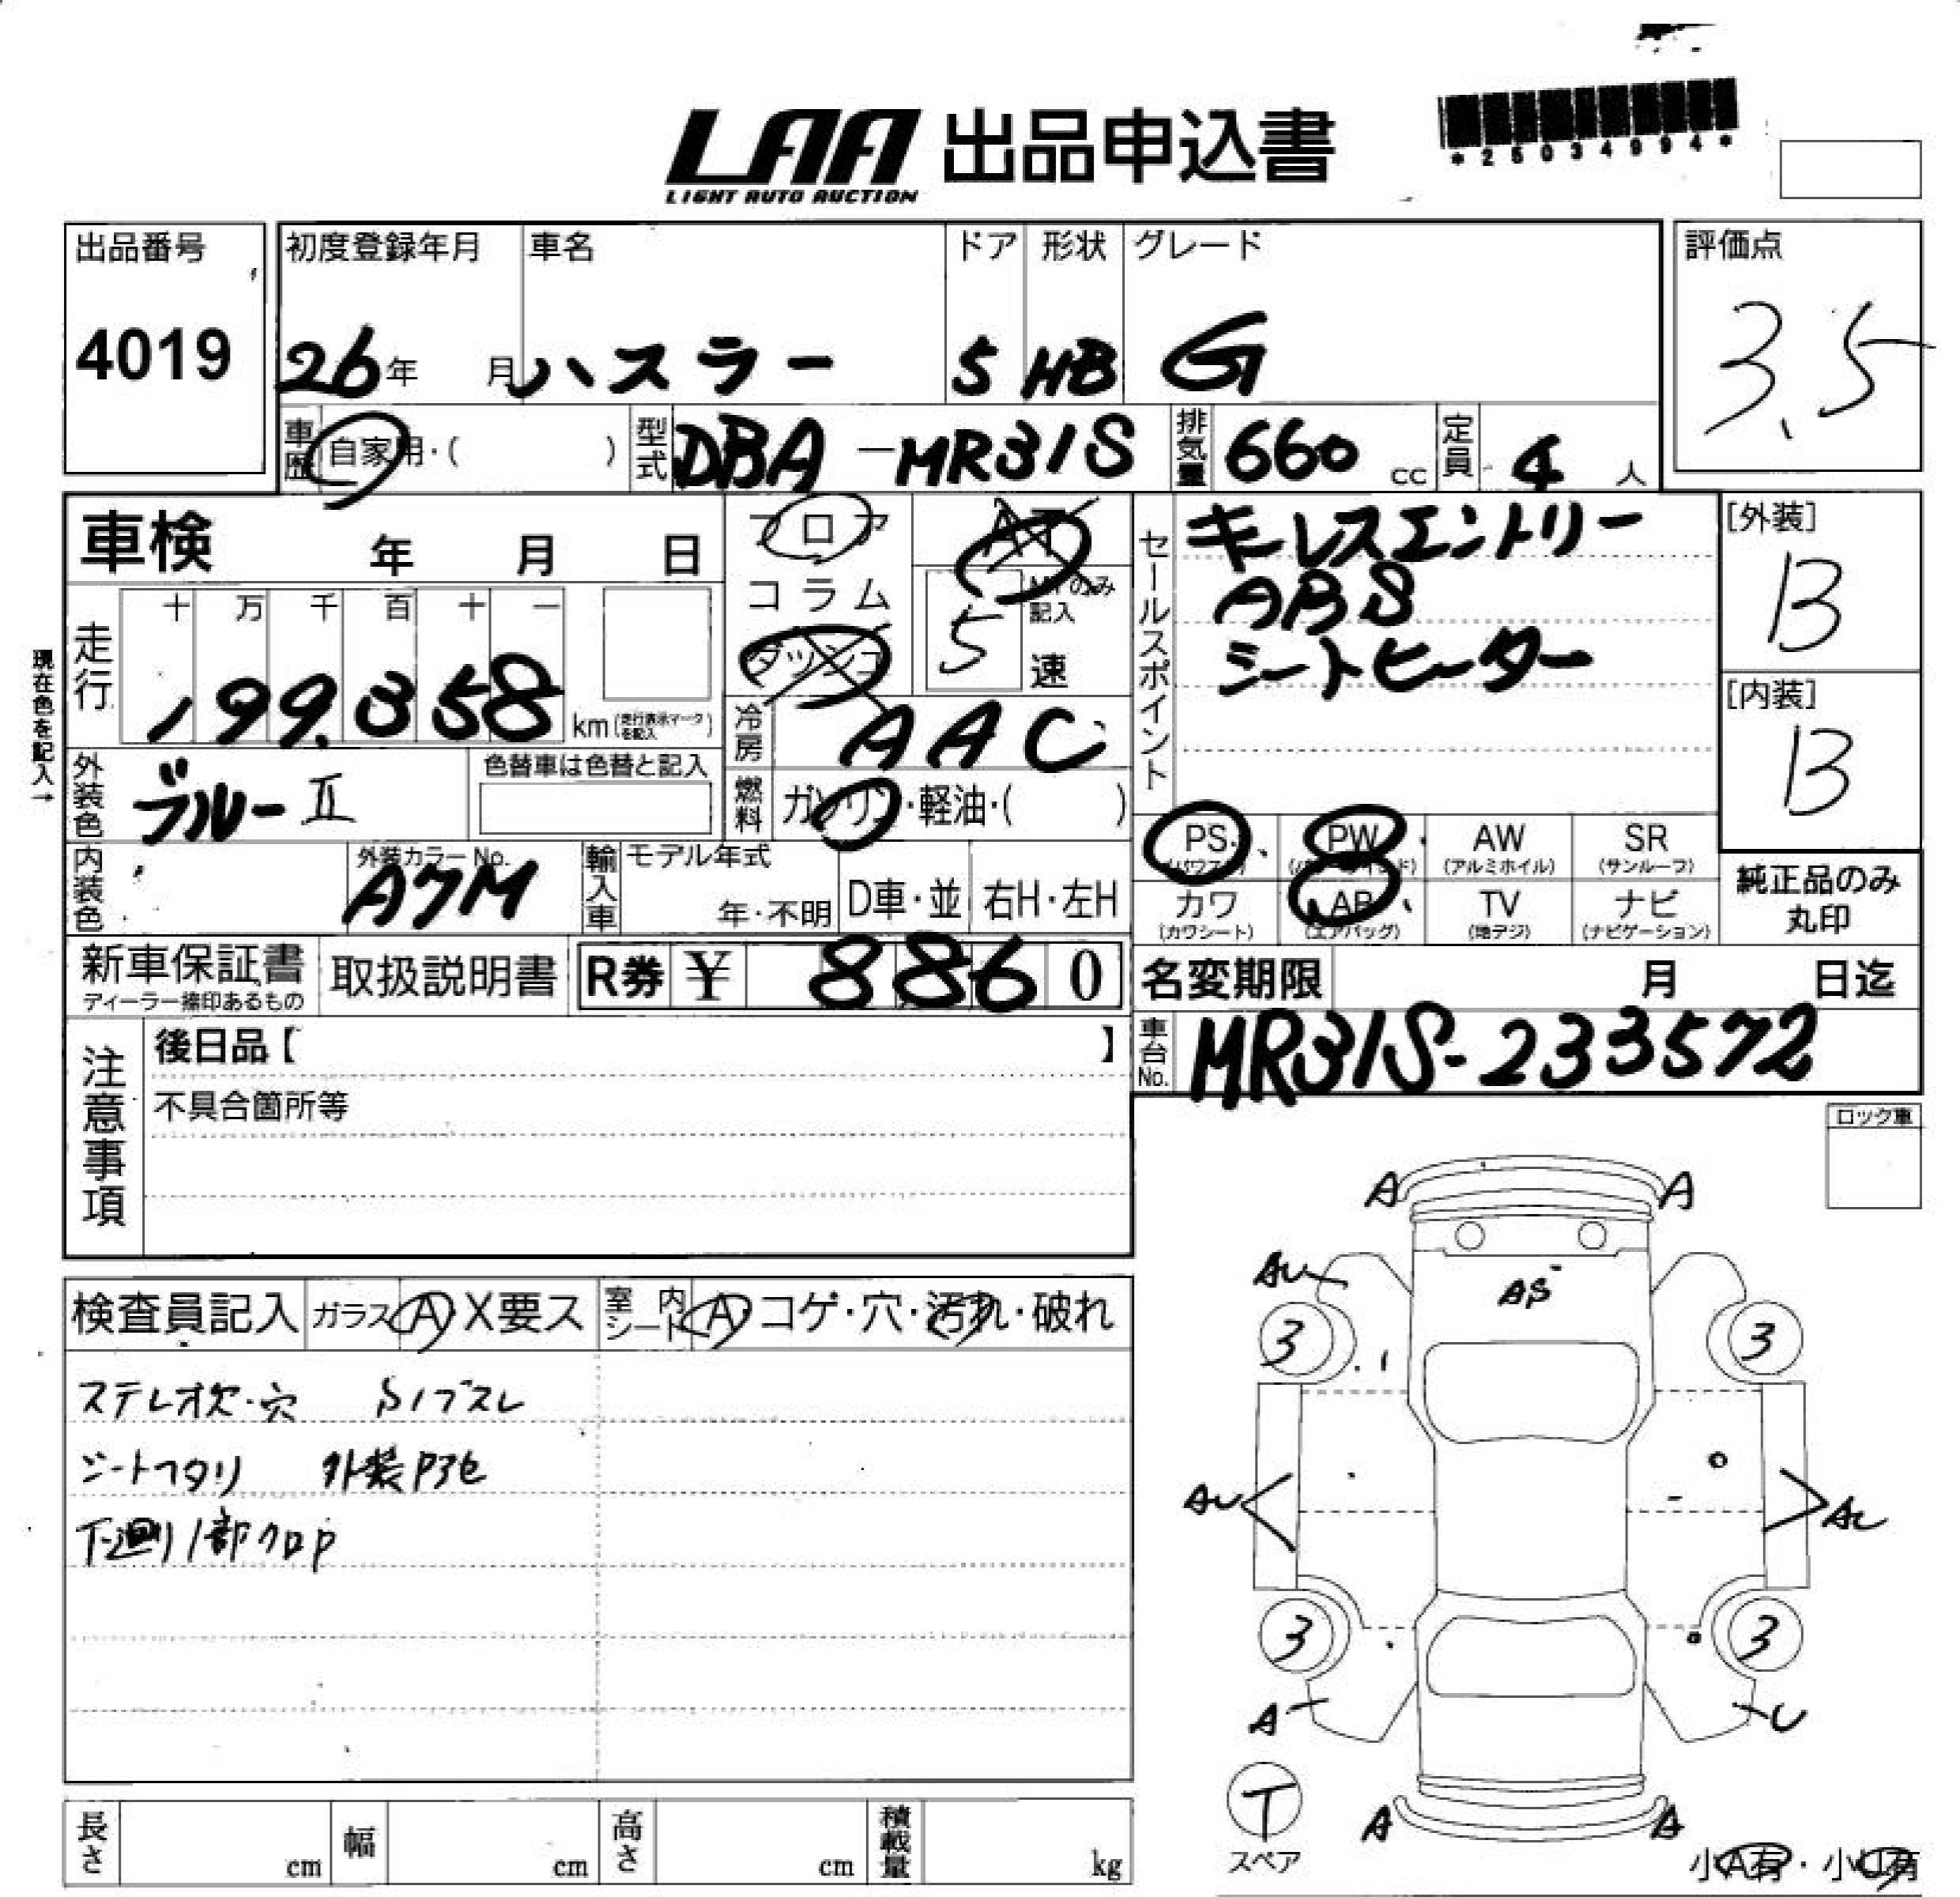 LAA 出品申込書
LIGHT AUTO AUCTION
*25034994*
出品番号
4019
初度登録年月 車名 ドア 形状 グレード
26年 月 ハスラー 5 HB G
評価点
3.5
車歴 自家用・( ) 型式 DBA-MR31S 排気量 660 cc 定員 4 人
車検 年 月 日
フロア AT
コラム MTのみ記入
ダッシュ 5 速
セールスポイント
キーレスエントリー
ABS
シートヒーター
[外装]
B
[内装]
B
現在色を記入→
走行 十 万 千 百 十 一
199.358 km (走行表示マークを記入)
冷房 AAC
外装色 ブルーII 色替車は色替と記入
燃料 ガソリン・軽油・( )
PS (パワステ) PW (パワーウインド) AW (アルミホイル) SR (サンルーフ)
カワ (カワシート) AB (エアバッグ) TV (地デジ) ナビ (ナビゲーション)
純正品のみ
丸印
内装色 外装カラーNo. 輸入車 モデル年式
年・不明 D車・並 右H・左H
新車保証書 取扱説明書 R券 ¥ 8860
ディーラー捺印あるもの
名変期限 月 日迄
車台No. MR31S-233572
注意事項
後日品【 】
不具合箇所等
ロック車
検査員記入 ガラス A・X要ス 室内シート A・コゲ・穴・汚れ・破れ
ステレオ欠・穴
シートヘタリ
下廻り1部クロP
A A
AU
3 3
AU
3 3
A U
T
スペア
A A
小A有・小U有
長さ cm 幅 cm 高さ cm 積載量 kg